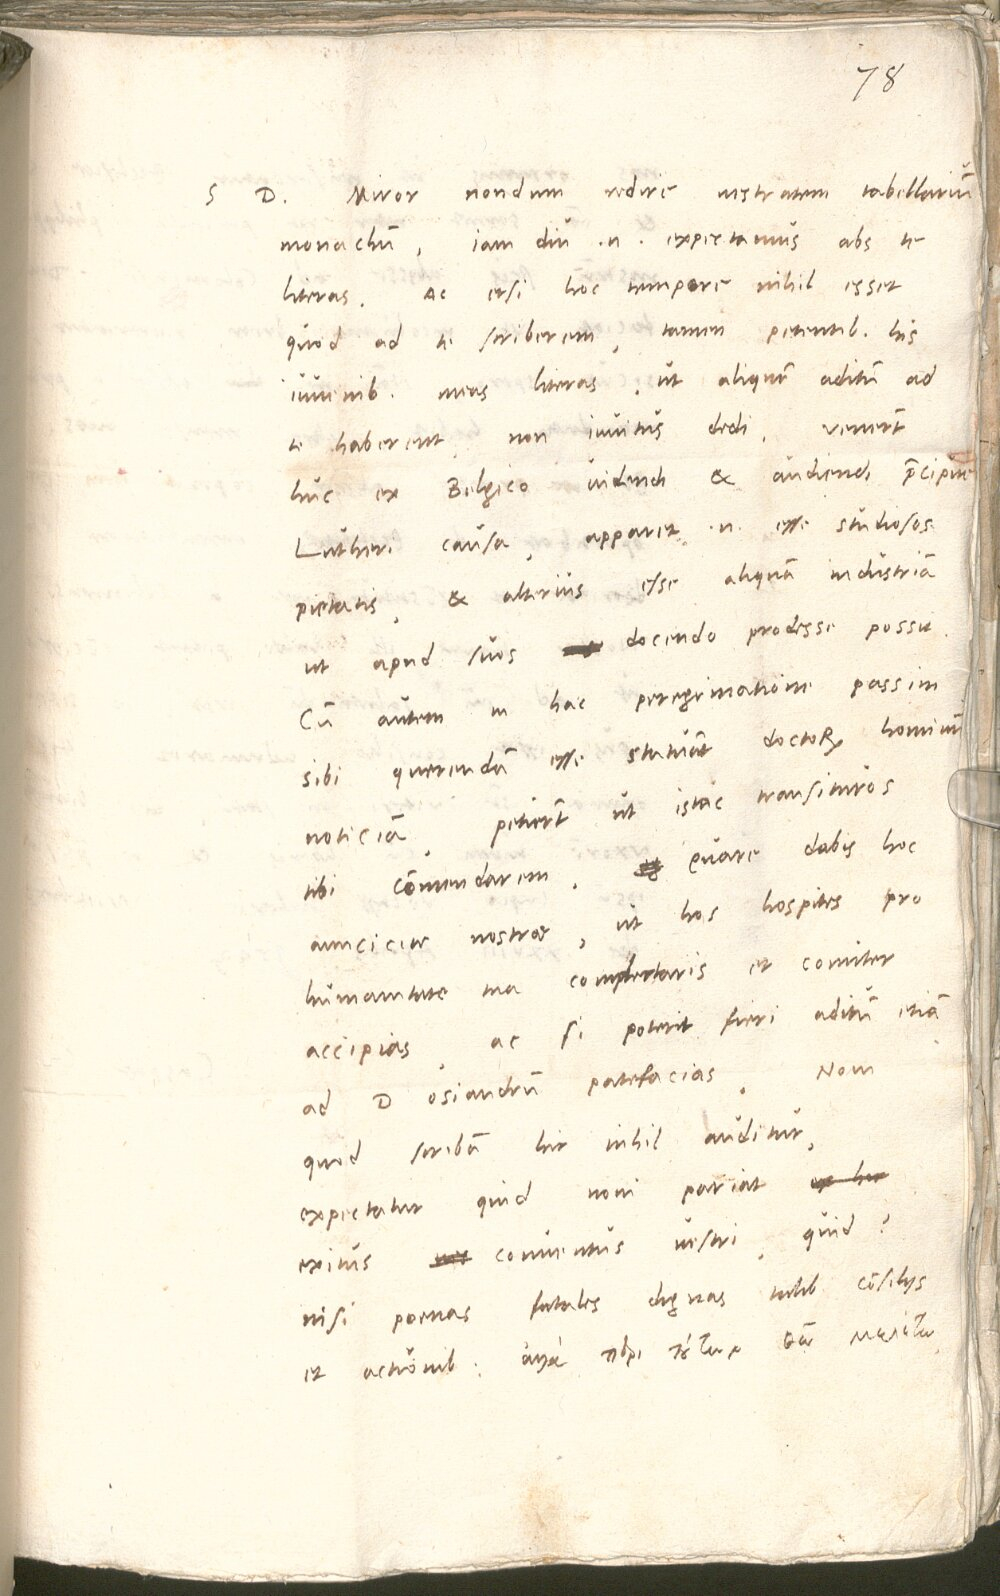 78
S D. Miror nondum redire vestratem tabellariū
monachū, iam diu .n. expectamus abs te
literas. Ac etsi hoc tempore nihil esset
quod ad te scriberem, tamen petentib. his
iuvenib. meas literas, ut aliquē aditū ad
te haberent, non invitus dedi. venerūt
huc ex Belgico videndi & audiendi p̄cipue
Lutheri causa, apparet .n. esse studiosos
pietatis, & alterius esse aliquā industriā
ut apud suos docendo prodesse possit.
Cū autem in hac peregrinatione passim
sibi querendā esse statuāt doctoꝝ hominū
noticiā, petierūt ut istac transituros
tibi cōmendarem. Quare dabis hoc
amicicie nostrae, ut hos hospites pro
humanitate tua complectaris et comiter
accipias, ac si poterit fieri aditū etiā
ad D osiandrū patefacias. Novi
quod scribā hic nihil auditur,
expectatur quid novi pariat ex hoc
exitus conventus vestri, quid?
nisi poenas fatales dignas talib cōsilijs
et actionib.